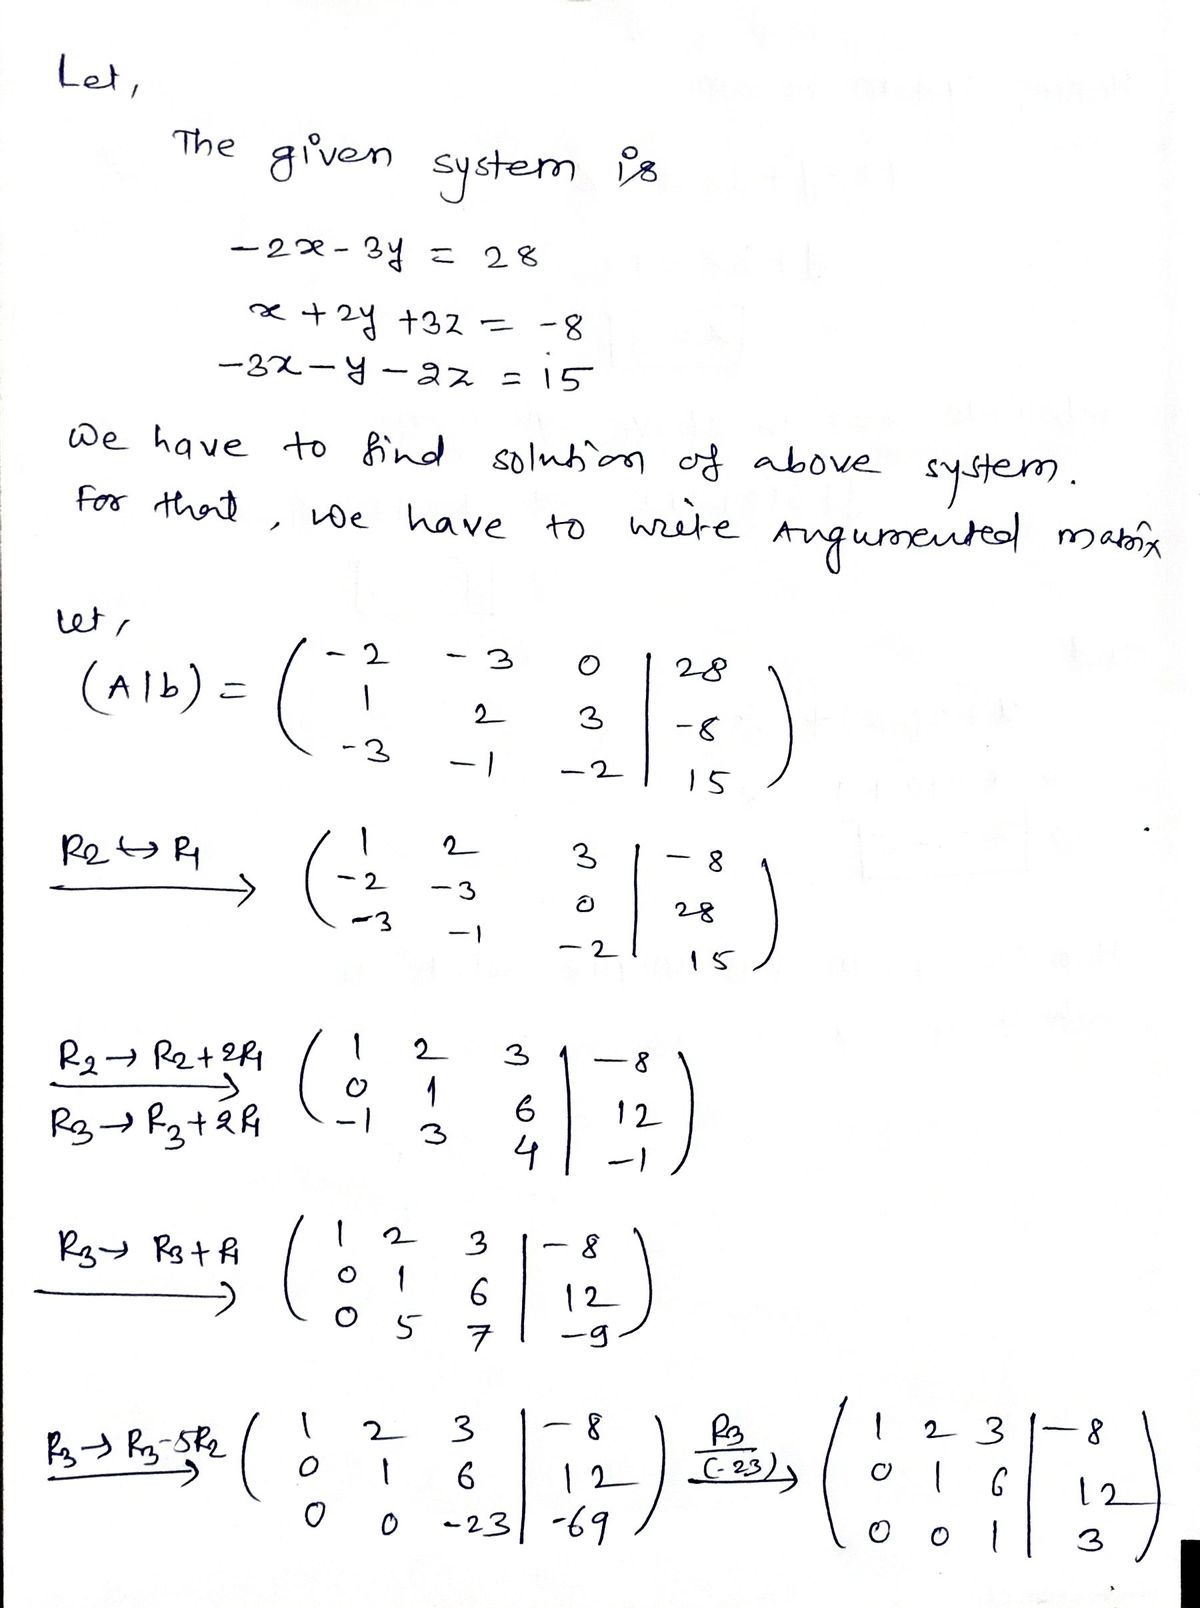 Let,
The given system is
-2x - 3y = 28
x + 2y + 3z = -8
-3x - y - 2z = 15
We have to find solution of above system.
For that, we have to write Angumented matrix
Let,
(A|b) = ( -2 -3 0 | 28 )
1 2 3 | -8
-3 -1 -2 | 15
R2 ↔ R1 ( 1 2 3 | -8 )
-2 -3 0 | 28
-3 -1 -2 | 15
R2 → R2 + 2R1 ( 1 2 3 | -8 )
0 1 6 | 12
R3 → R3 + 2R1 -1 3 4 | -1
R3 → R3 + R1 ( 1 2 3 | -8 )
0 1 6 | 12
0 5 7 | -9
R3 → R3 - 5R2 ( 1 2 3 | -8 ) R3/(-23) → ( 1 2 3 | -8 )
0 1 6 | 12 0 1 6 | 12
0 0 -23 | -69 0 0 1 | 3